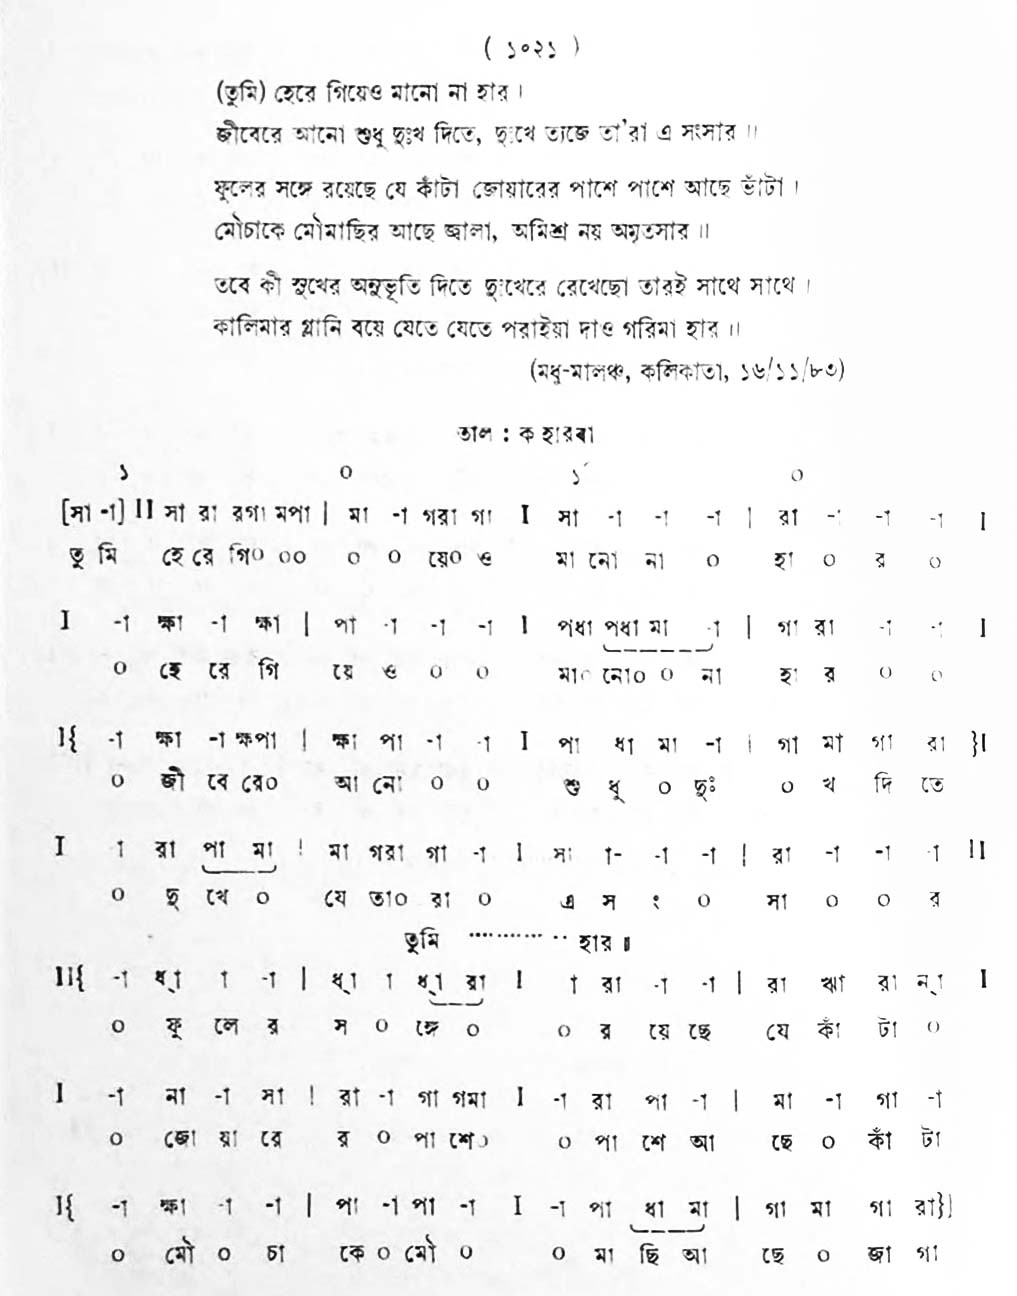 ( ১০২১ )
(তুমি) হেরে গিয়েও মানো না হার ।
জীবেরে আনো শুধু দুঃখ দিতে, দুঃখে ত্যজে তা'রা এ সংসার ॥
ফুলের সঙ্গে রয়েছে যে কাঁটা জোয়ারের পাশে পাশে আছে ভাঁটা ।
মৌচাকে মৌমাছির আছে জ্বালা, অমিশ্র নয় অমৃতসার ॥
তবে কী সুখের অনুভূতি দিতে দুঃখেরে রেখেছো তারই সাথে সাথে ।
কালিমার গ্লানি বয়ে যেতে যেতে পরাইয়া দাও গরিমা হার ॥
(মধু-মালঞ্চ, কলিকাতা, ১৬/১১/৮৩)
তাল : কাহারবা
১ ০ ১´ ০
[সা -া] II সা রা রগা মপা | মা -া গরা গা I সা -া -া -া | রা -া -া -া I
তু মি হে রে গি০ ০০ ০ ০ য়ে০ ও মা নো না ০ হা ০ র ০
I -া ক্ষা -া ক্ষা | পা -া -া -া I পধা পধা মা -া | গা রা -া -া I
০ হে রে গি য়ে ও ০ ০ মা০ নো০ ০ না হা র ০ ০
I{ -া ক্ষা -া ক্ষপা | ক্ষা পা -া -া I পা ধা মা -া | গা মা গা রা }I
০ জী বে রে০ আ নো ০ ০ শু ধু ০ দুঃ ০ খ দি তে
I া রা পা মা | মা গরা গা -া I সা া- -া -া | রা -া -া -া II
০ দু খে ০ যে তা০ রা ০ এ স ং ০ সা ০ ০ র
তুমি ············ হার ॥
II{ -া ধ্া া -া | ধ্া া ধ্া রা I া রা -া -া | রা ঋা রা ন্া I
০ ফু লে র স ০ ঙ্গে ০ ০ র য়ে ছে যে কাঁ টা ০
I -া না -া সা | রা -া গা গমা I -া রা পা -া | মা -া গা -া
০ জো য়া রে র ০ পা শে০ ০ পা শে আ ছে ০ কাঁ টা
I{ -া ক্ষা -া -া | পা -া পা -া I -া পা ধা মা | গা মা গা রা}|
০ মৌ ০ চা কে ০ মৌ ০ ০ মা ছি আ ছে ০ জা গা